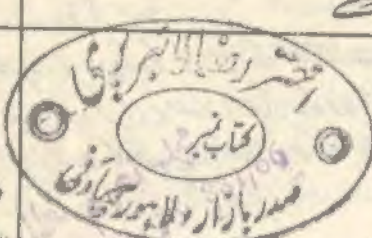 اختر رضا لائبریری
کتاب نمبر
صدر بازار لاہور چھاؤنی